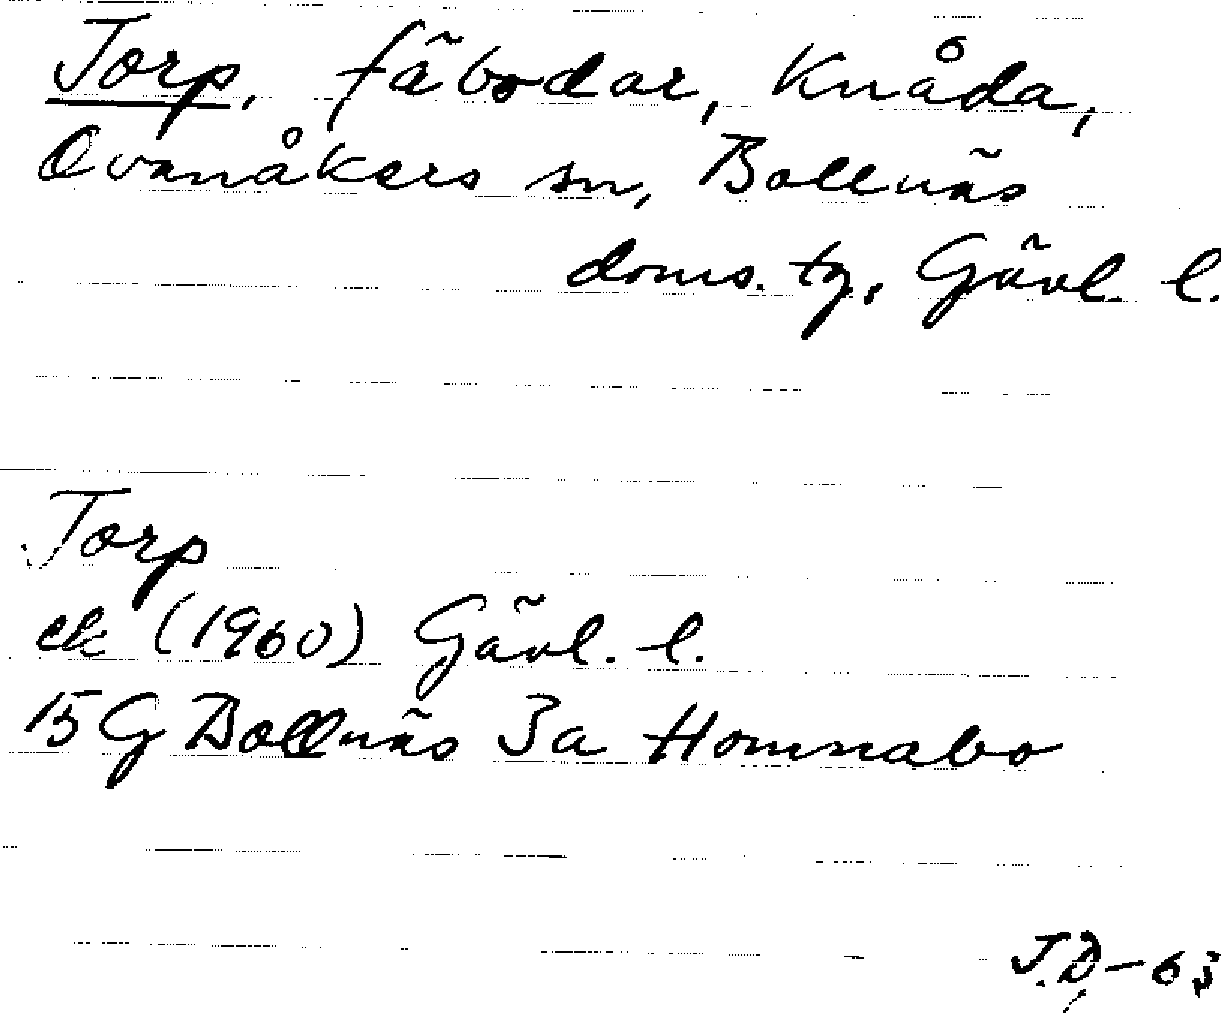 Torp, fäbodar, Knåda,
Ovanåkers sn, Bollnäs
doms. tg, Gävl. l.
Torp
ek (1960) Gävl. l.
15 G Bollnäs 3a Homnabo
J.D-63